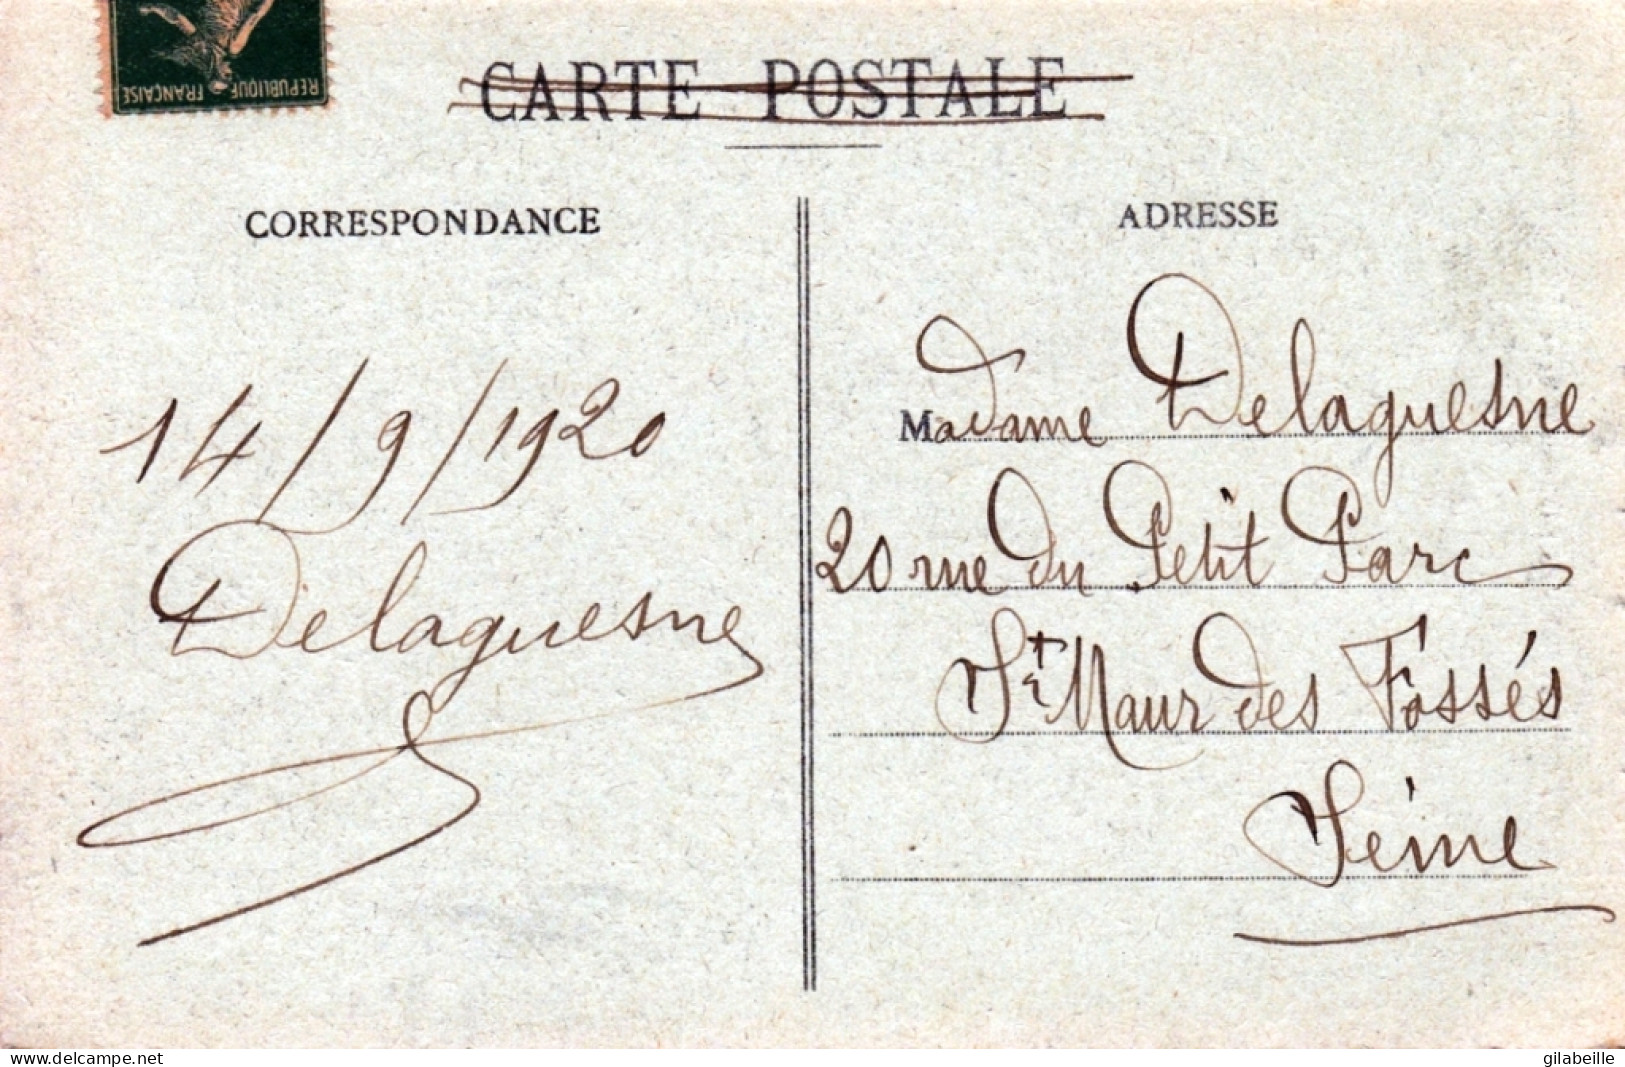 REPUBLIQUE FRANÇAISE
CARTE POSTALE
CORRESPONDANCE
14/9/1920
Delaguesne
ADRESSE
Madame Delaguesne
20 rue du Petit Parc
St Maur des Fossés
Seine
www.delcampe.net
gilabeille